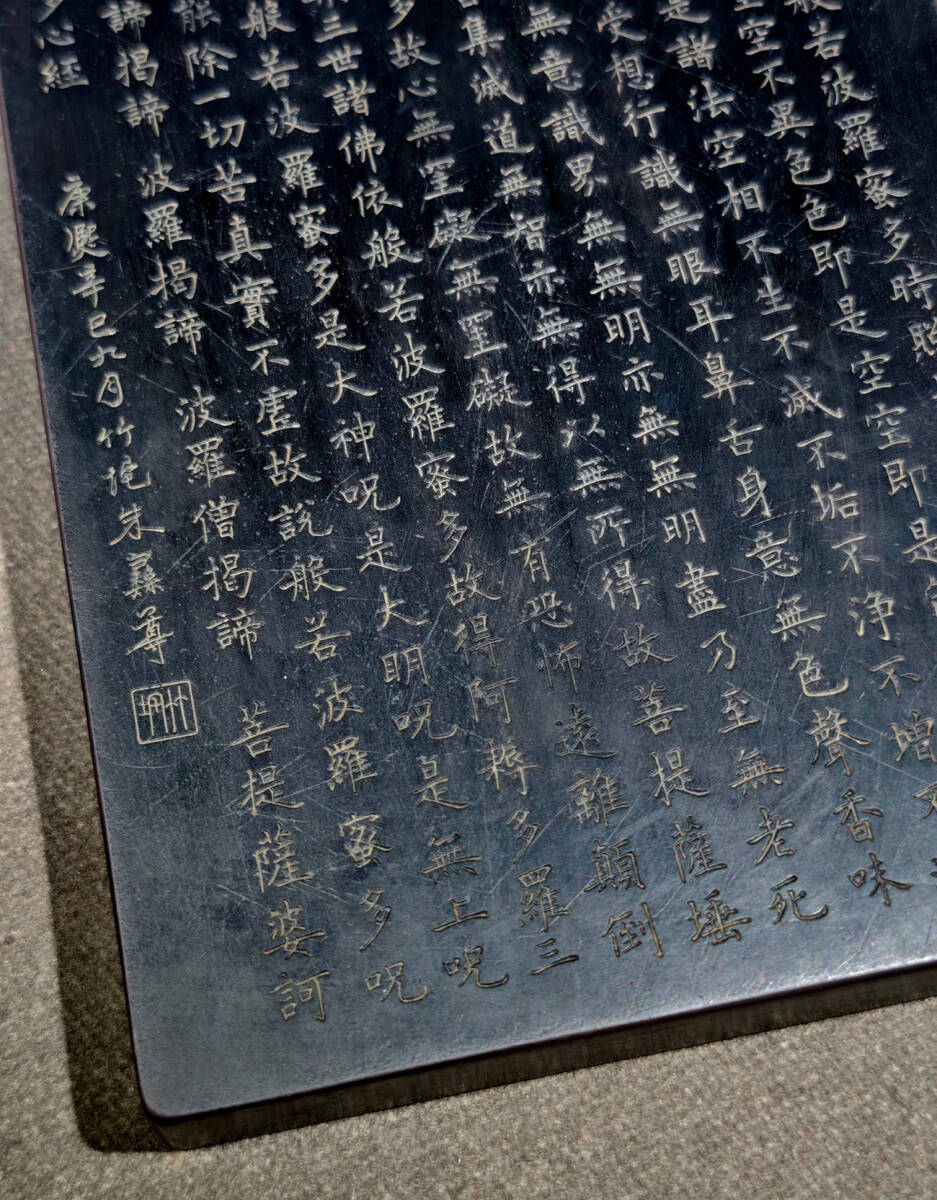 般若波羅蜜多時照
空空不異色色即是空空即是
是諸法空相不生不滅不垢不淨不增不
受想行識無眼耳鼻舌身意無色聲香味
無意識界無無明亦無無明盡乃至無老死
集滅道無智亦無得以無所得故菩提薩埵
多故心無罣礙無罣礙故無有恐怖遠離顛倒
三世諸佛依般若波羅蜜多故得阿耨多羅三
般若波羅蜜多是大神呪是大明呪是無上呪
能除一切苦真實不虛故說般若波羅蜜多呪
諦揭諦 波羅揭諦 波羅僧揭諦 菩提薩婆訶
心經 康熙辛巳九月竹垞朱彝尊